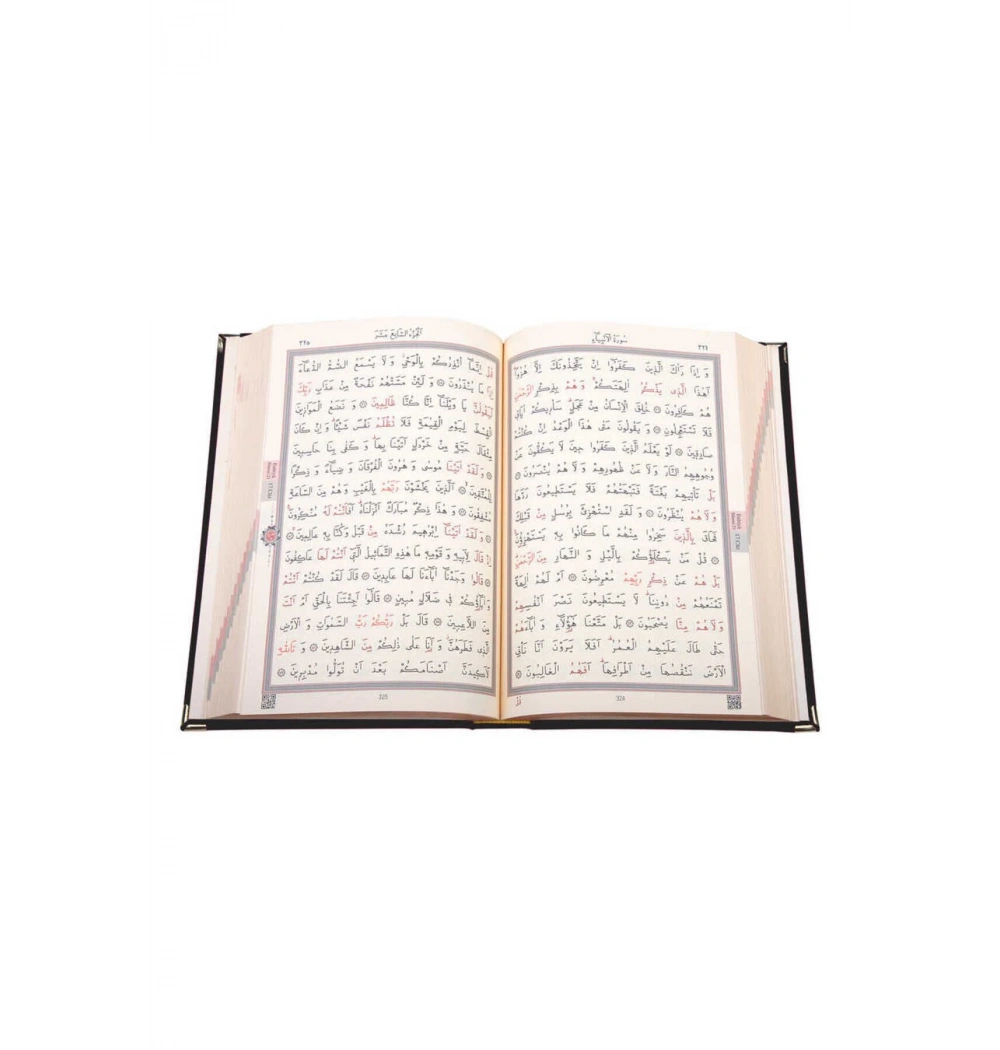 سُورَةُ الْاَنْبِيَاءِ
٣٢٤
وَ اِذَا رَاٰكَ الَّذٖينَ كَفَرُٓوا اِنْ يَتَّخِذُونَكَ اِلَّا هُزُوًا
اَهٰذَا الَّذٖى يَذْكُرُ اٰلِهَتَكُمْ وَ هُمْ بِذِكْرِ الرَّحْمٰنِ
هُمْ كَافِرُونَ ۞ خُلِقَ الْاِنْسَانُ مِنْ عَجَلٍ سَاُرٖيكُمْ اٰيَاتٖى
فَلَا تَسْتَعْجِلُونِ ۞ وَ يَقُولُونَ مَتٰى هٰذَا الْوَعْدُ اِنْ كُنْتُمْ
صَادِقٖينَ ۞ لَوْ يَعْلَمُ الَّذٖينَ كَفَرُوا حٖينَ لَا يَكُفُّونَ عَنْ
وُجُوهِهِمُ النَّارَ وَ لَا عَنْ ظُهُورِهِمْ وَ لَا هُمْ يُنْصَرُونَ ۞
بَلْ تَاْتٖيهِمْ بَغْتَةً فَتَبْهَتُهُمْ فَلَا يَسْتَطٖيعُونَ رَدَّهَا
وَ لَا هُمْ يُنْظَرُونَ ۞ وَ لَقَدِ اسْتُهْزِئَ بِرُسُلٍ مِنْ قَبْلِكَ
فَحَاقَ بِالَّذٖينَ سَخِرُوا مِنْهُمْ مَا كَانُوا بِهٖ يَسْتَهْزِؤُنَ
۞ قُلْ مَنْ يَكْلَؤُكُمْ بِالَّيْلِ وَ النَّهَارِ مِنَ الرَّحْمٰنِ
بَلْ هُمْ عَنْ ذِكْرِ رَبِّهِمْ مُعْرِضُونَ ۞ اَمْ لَهُمْ اٰلِهَةٌ
تَمْنَعُهُمْ مِنْ دُونِنَا لَا يَسْتَطٖيعُونَ نَصْرَ اَنْفُسِهِمْ
وَ لَا هُمْ مِنَّا يُصْحَبُونَ ۞ بَلْ مَتَّعْنَا هٰٓؤُلَٓاءِ وَ اٰبَٓاءَهُمْ
حَتّٰى طَالَ عَلَيْهِمُ الْعُمُرُ اَفَلَا يَرَوْنَ اَنَّا نَاْتِى
الْاَرْضَ نَنْقُصُهَا مِنْ اَطْرَافِهَا اَفَهُمُ الْغَالِبُونَ ۞
324
قُلْ
اَلْجُزْءُ السَّابِعَ عَشَرَ
٣٢٥
قُلْ اِنَّمَٓا اُنْذِرُكُمْ بِالْوَحْىِ وَ لَا يَسْمَعُ الصُّمُّ الدُّعَٓاءَ
اِذَا مَا يُنْذَرُونَ ۞ وَ لَئِنْ مَسَّتْهُمْ نَفْحَةٌ مِنْ عَذَابِ رَبِّكَ
لَيَقُولُنَّ يَا وَيْلَنَٓا اِنَّا كُنَّا ظَالِمٖينَ ۞ وَ نَضَعُ الْمَوَازٖينَ
الْقِسْطَ لِيَوْمِ الْقِيٰمَةِ فَلَا تُظْلَمُ نَفْسٌ شَيْئًا وَ اِنْ كَانَ
مِثْقَالَ حَبَّةٍ مِنْ خَرْدَلٍ اَتَيْنَا بِهَا وَ كَفٰى بِنَا حَاسِبٖينَ
۞ وَ لَقَدْ اٰتَيْنَا مُوسٰى وَ هٰرُونَ الْفُرْقَانَ وَ ضِيَٓاءً وَ ذِكْرًا
لِلْمُتَّقٖينَ ۞ اَلَّذٖينَ يَخْشَوْنَ رَبَّهُمْ بِالْغَيْبِ وَ هُمْ مِنَ السَّاعَةِ
مُشْفِقُونَ ۞ وَ هٰذَا ذِكْرٌ مُبَارَكٌ اَنْزَلْنَاهُ اَفَاَنْتُمْ لَهُ مُنْكِرُونَ
۞ وَ لَقَدْ اٰتَيْنَٓا اِبْرٰهٖيمَ رُشْدَهُ مِنْ قَبْلُ وَ كُنَّا بِهٖ عَالِمٖينَ ۞
اِذْ قَالَ لِاَبٖيهِ وَ قَوْمِهٖ مَا هٰذِهِ التَّمَاثٖيلُ الَّتٖٓى اَنْتُمْ لَهَا عَاكِفُونَ
۞ قَالُوا وَجَدْنَٓا اٰبَٓاءَنَا لَهَا عَابِدٖينَ ۞ قَالَ لَقَدْ كُنْتُمْ اَنْتُمْ
وَ اٰبَٓاؤُكُمْ فٖى ضَلَالٍ مُبٖينٍ ۞ قَالُٓوا اَجِئْتَنَا بِالْحَقِّ اَمْ اَنْتَ
مِنَ اللَّاعِبٖينَ ۞ قَالَ بَلْ رَبُّكُمْ رَبُّ السَّمٰوَاتِ وَ الْاَرْضِ
الَّذٖى فَطَرَهُنَّ وَ اَنَا عَلٰى ذٰلِكُمْ مِنَ الشَّاهِدٖينَ ۞ وَ تَاللّٰهِ
لَاَكٖيدَنَّ اَصْنَامَكُمْ بَعْدَ اَنْ تُوَلُّوا مُدْبِرٖينَ ۞
325